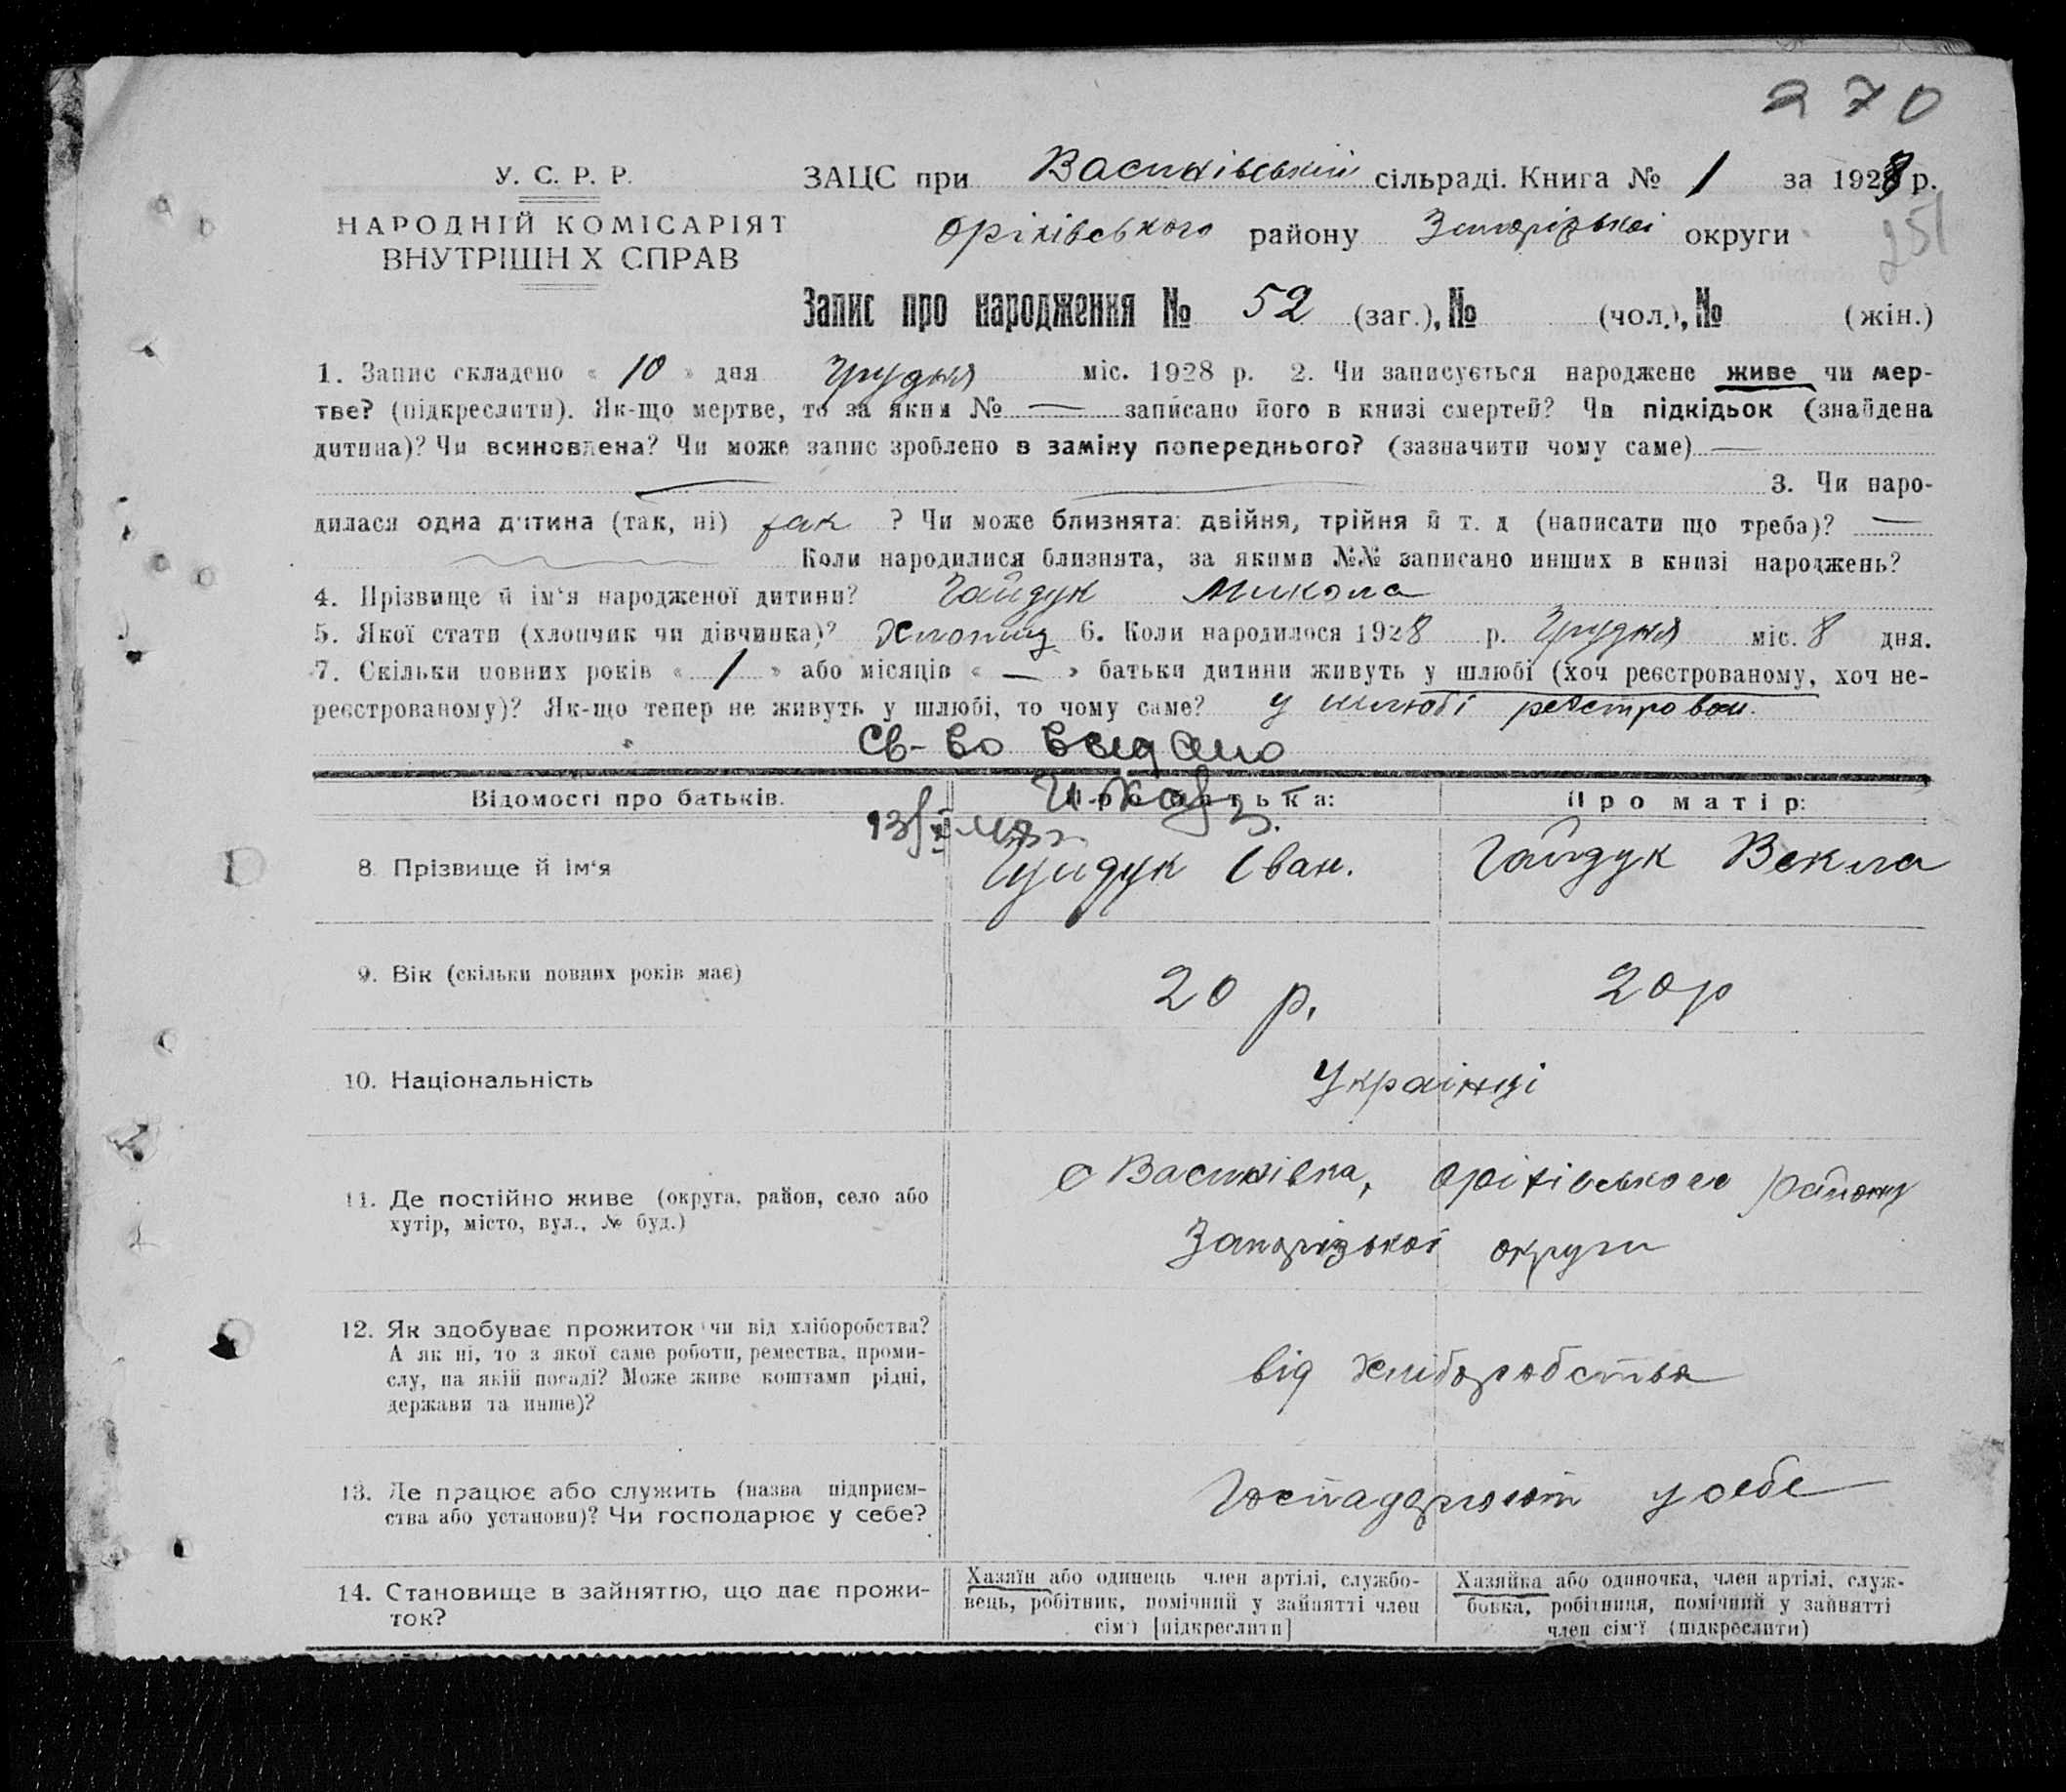 270
У. С. Р. Р.
НАРОДНІЙ КОМІСАРІЯТ
ВНУТРІШН Х СПРАВ
ЗАЦС при Васинівській сільраді. Книга № 1 за 1928 р.
Оріхівського району Запорізької округи
251
Запис про народження № 52 (заг.), № (чол.), № (жін.)
1. Запис складено « 10 » дня Грудня міс. 1928 р. 2. Чи записується народжене живе чи мер-
тве? (підкреслити). Як-що мертве, то за яким № — записано його в книзі смертей? Чи підкідьок (знайдена
дитина)? Чи всиновлена? Чи може запис зроблено в заміну попереднього? (зазначити чому саме) —
3. Чи наро-
дилася одна дитина (так, ні) так ? Чи може близнята: двійня, трійня й т. д (написати що треба)? —
Коли народилися близнята, за якими №№ записано инших в книзі народжень?
4. Прізвище й ім'я народженої дитини? Гайдук Микола
5. Якої стати (хлопчик чи дівчинка)? Хлопиц 6. Коли народилося 1928 р. Грудня міс. 8 дня.
7. Скільки повних років « 1 » або місяців « — » батьки дитини живуть у шлюбі (хоч реєстрованому, хоч не-
реєстрованому)? Як-що тепер не живуть у шлюбі, то чому саме? у шлюбі реєстрован.
Св-во выдано
Відомості про батьків.
Про батька:
Про матір:
8. Прізвище й ім'я
Гайдук Іван.
Гайдук Векла
9. Вік (скільки повних років має)
20 р.
20 р
10. Національність
Українці
11. Де постійно живе (округа, район, село або
хутір, місто, вул., № буд.)
с Васинівка, Оріхівського району
Запорізької округи
12. Як здобуває прожиток чи від хліборобства?
А як ні, то з якої саме роботи, ремества, проми-
слу, на якій посаді? Може живе коштами рідні,
держави та инше)?
від хліборобства
13. Де працює або служить (назва підприєм-
ства або установи)? Чи господарює у себе?
Господарюют у себе
14. Становище в зайняттю, що дає прожи-
ток?
Хазяїн або одинець член артілі, службо-
вець, робітник, помічний у зайнятті член
сім'ї [підкреслити]
Хазяйка або одиночка, член артілі, служ-
бовка, робітниця, помічний у зайнятті
член сім'ї (підкреслити)